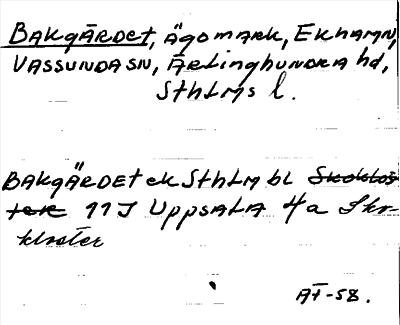 BAKGÄRDET, ÄGOMARK, EKHAMN,
VASSUNDA SN, ÄRLINGHUNDRA hd,
SthLMs l.
BAKGÄRDET ek SthLM bl Skoklos
ter 11J UppsALA 4a Skr
kloster
AF-58.